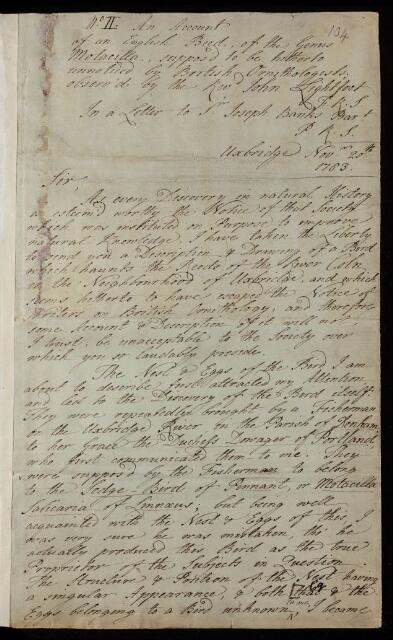 134
No. II. An Account
of an English Bird, of the Genus
Motacilla, suppos'd to be hitherto
unnoticed by British Ornithologists,
observ'd by the Rev John Lightfoot
F. R. S.
In a Letter to Sr Joseph Banks Bart
P. R. S.
Uxbridge Novr 20th
1783.
Sir,
As every Discovery in natural History
is esteem'd worthy the Notice of that Society
which was instituted on Purpose to improve
natural Knowledge, I have taken the Liberty
to send you a Description & Drawing of a Bird
which haunts the Reeds of the River Coln,
in the Neighbourhood of Uxbridge, and which
seems hitherto to have escaped the Notice of
Writers on British Ornithology, and therefore
some Account & Description of it will not,
I trust, be unacceptable to the Society over
which you so laudably preside.
The Nest & Eggs of the Bird I am
about to describe first attracted my Attention
and led to the Discovery of the Bird itself.
They were repeatedly brought by a Fisherman
on the Uxbridge River, in the Parish of Denham,
to her Grace the Duchess Dowager of Portland,
who first communicated them to me. They
were suppos'd by the Fisherman to belong
to the Sedge-Bird of Pennant, or Motacilla
Salicaria of Linnæus; but being well
acquainted with the Nest & Eggs of this, I
was very sure he was mistaken, tho' he
actually produced this Bird as the true
Proprietor of the Subjects in Question.
The Structure & Position of the Nest having
a singular Appearance, & both that & the
Eggs belonging to a Bird unknown, I became